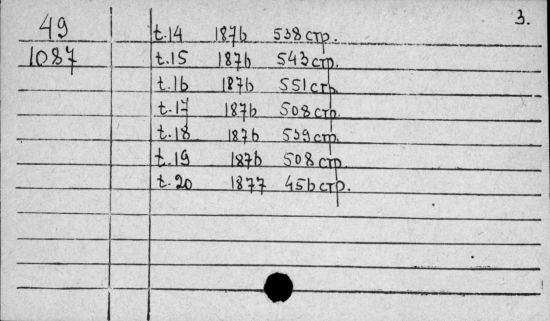 3.
49 t.14 1876 538 стр.
1087 t.15 1876 543 стр.
t.16 1876 551 стр.
t.17 1876 508 стр.
t.18 1876 539 стр.
t.19 1876 508 стр.
t.20 1877 456 стр.